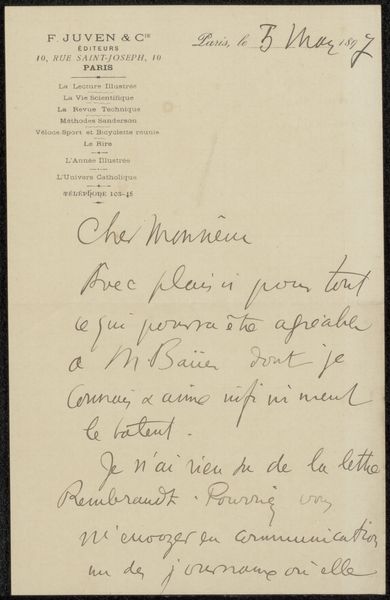 F. JUVEN & CIE
ÉDITEURS
10, RUE SAINT-JOSEPH, 10
PARIS
La Lecture Illustrée
La Vie Scientifique
La Revue Technique
Méthodes Sanderson
Véloce-Sport et Bicyclette réunis
Le Rire
L'Année Illustrée
L'Univers Catholique
TÉLÉPHONE 103-45
Paris, le 5 May 1897
Cher Monsieur
Avec plaisir pour tout
ce qui pourra être agréable
a M Bauer dont je
connais & aime infiniment
le talent.
Je n'ai rien su de la lettre
Rembrandt. Pourriez vous
m'envoyer en communication
un des journaux où elle